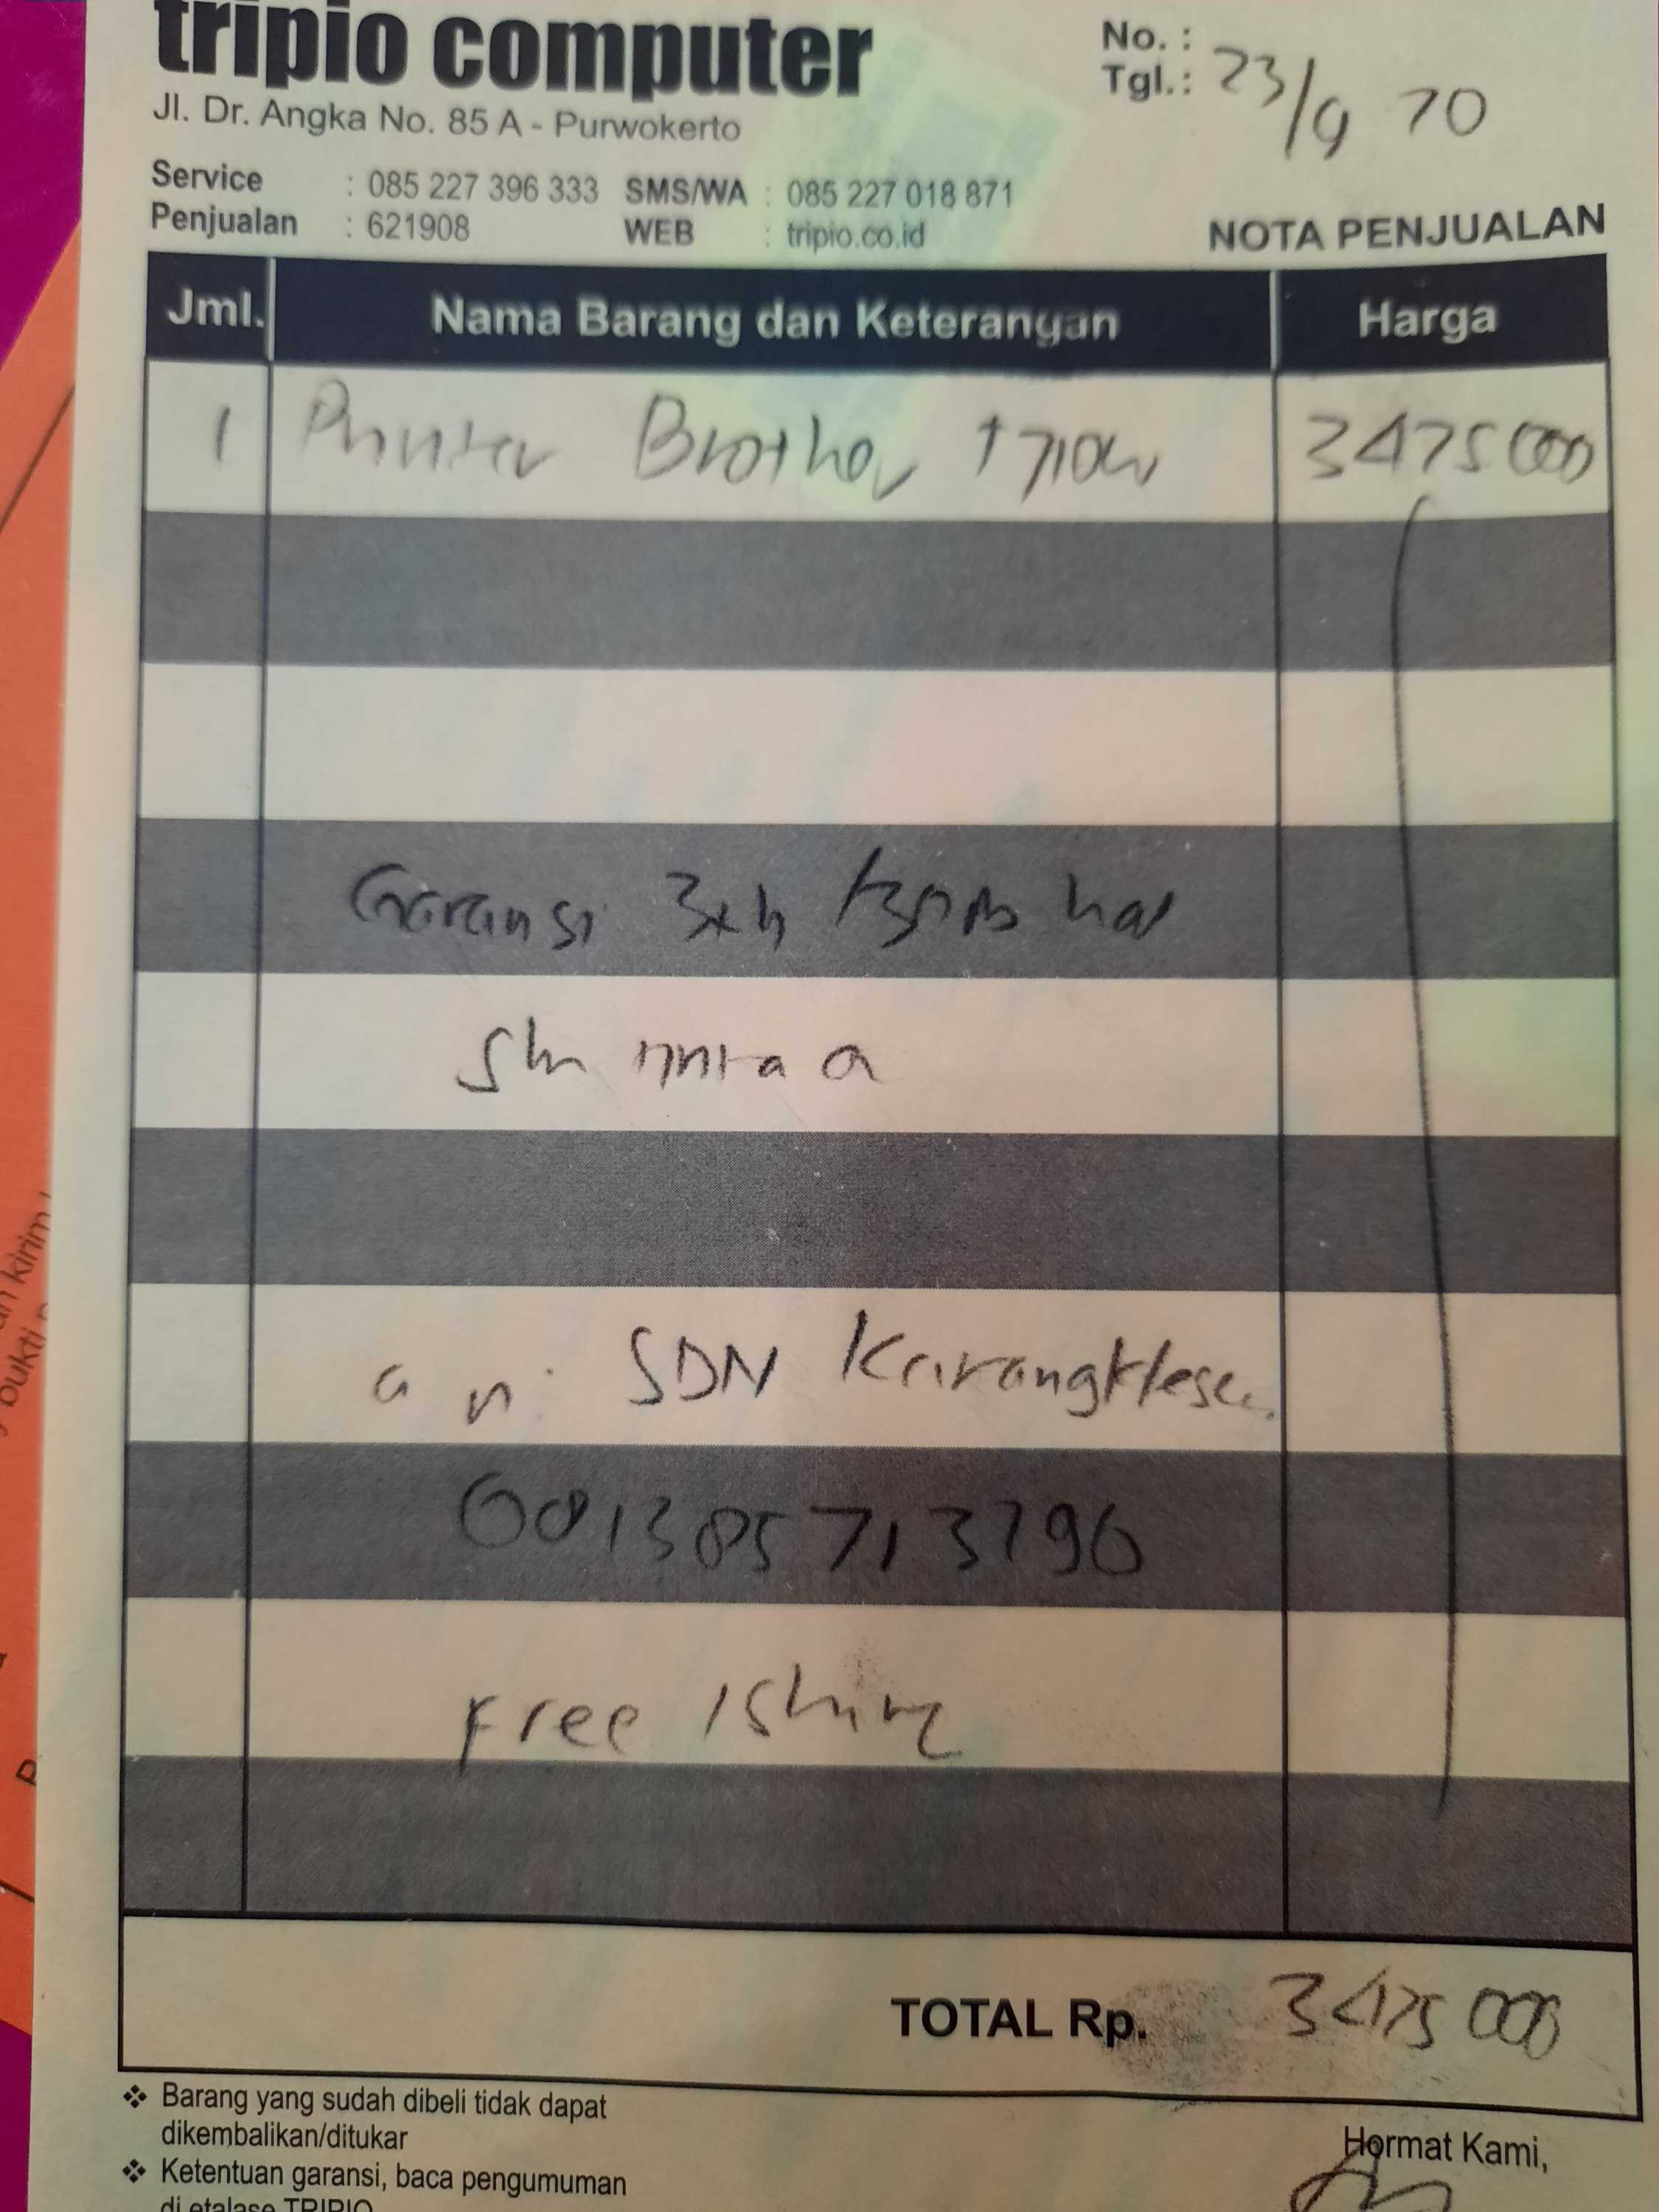 tripio computer
Jl. Dr. Angka No. 85 A - Purwokerto
No. :
Tgl.: 23/9 20
Service : 085 227 396 333 SMS/WA : 085 227 018 871
Penjualan : 621908 WEB : tripio.co.id
NOTA PENJUALAN
Jml. Nama Barang dan Keterangan Harga
1 Printer Brother T710W 3475000
Garansi 3th
a n. SDN Karangklesem
081385713796
Free
TOTAL Rp. 3475000
❖ Barang yang sudah dibeli tidak dapat
dikembalikan/ditukar
❖ Ketentuan garansi, baca pengumuman
di etalase TRIPIO
Hormat Kami,